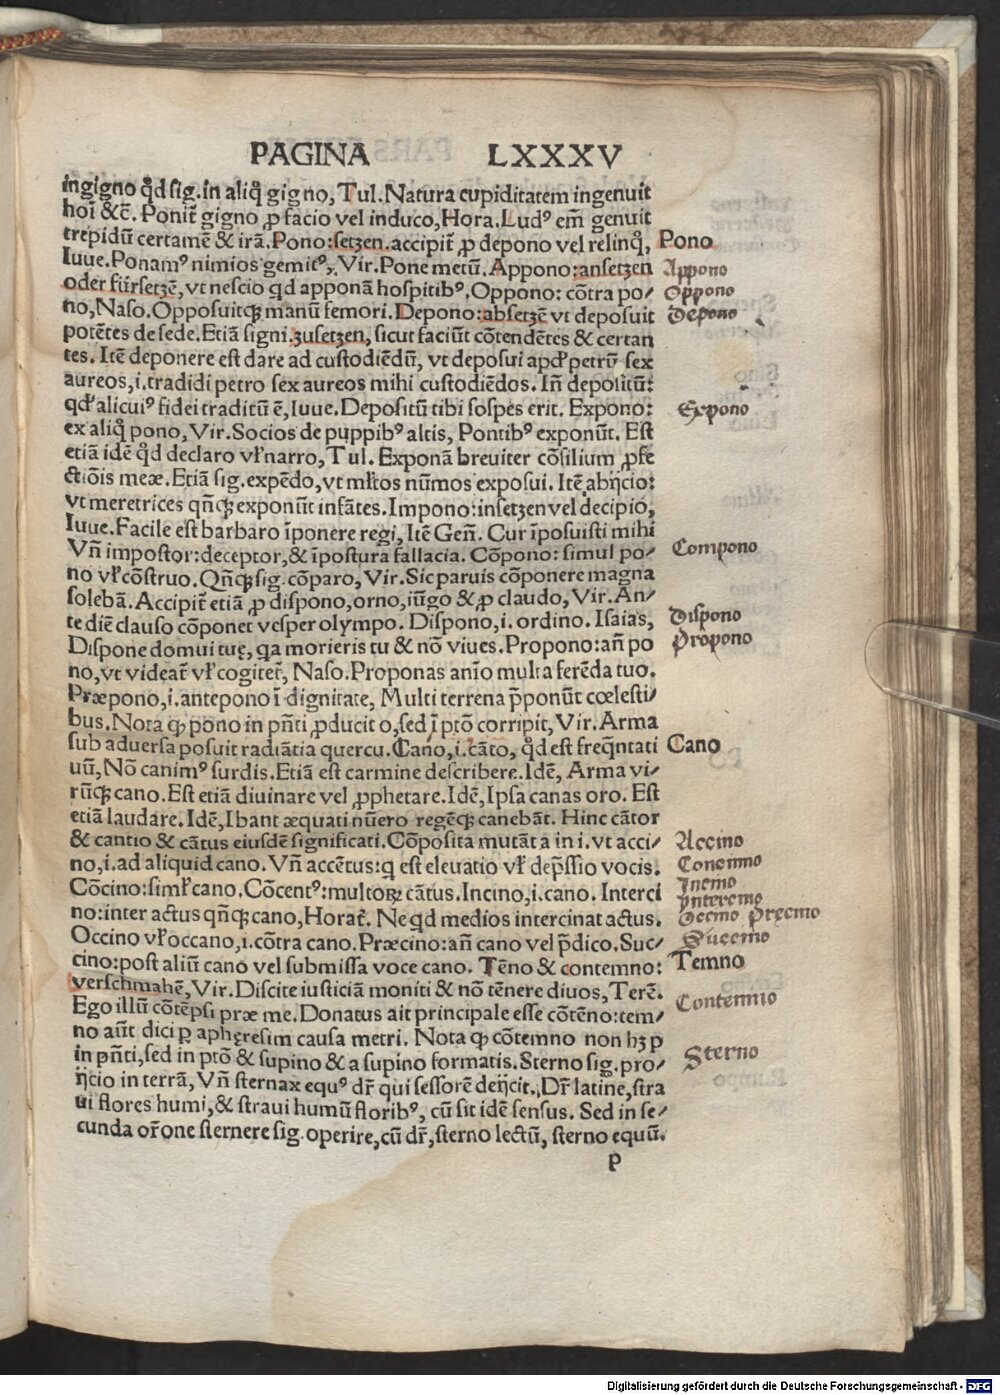 PAGINA LXXXV
ingigno qd sig. in aliq gigno, Tul. Natura cupiditatem ingenuit
hoi &c̄. Ponit̄ gigno ꝓ facio vel induco, Hora. Ludꝰ em̄ genuit
trepidū certamē & irā. Pono: setzen. accipit̄ ꝓ depono vel relinq̄, Pono
Iuue. Ponamꝰ nimios gemitꝰ, Vir. Pone metū. Appono: ansetzen Appono
oder fürsetzē, vt nescio qd apponā hospitibꝰ. Oppono: cōtra po⸗ Oppono
no, Naso. Opposuitqꝫ manū femori. Depono: absetzē vt deposuit Depono
potētes de sede. Etiā signi. zusetzen, sicut faciūt cōtendētes & certan
tes. Itē deponere est dare ad custodiēdū, vt deposui apd' petrū sex
aureos, i. tradidi petro sex aureos mihi custodiēdos. Iñ depositū:
qd' alicuiꝰ fidei traditū ē, Iuue. Depositū tibi sospes erit. Expono: Expono
ex aliq̄ pono, Vir. Socios de puppibꝰ altis, Pontibꝰ exponūt. Est
etiā idē qd declaro vl' narro, Tul. Exponā breuiter cōsilium ꝓfe
ctiōis meæ. Etiā sig. expēdo, vt ml'tos nūmos exposui. Itē abijcio:
vt meretrices qñqꝫ exponūt infātes. Impono: insetzen vel decipio,
Iuue. Facile est barbaro īponere regi, Itē Geñ. Cur īposuisti mihi
Vñ impostor: deceptor, & īpostura fallacia. Cōpono: simul po⸗ Compono
no vl' cōstruo. Qñqꝫ sig. cōparo, Vir. Sic paruis cōponere magna
solebā. Accipit̄ etiā ꝓ dispono, orno, iūgo & ꝓ claudo, Vir. An⸗
te diē clauso cōponet vesper olympo. Dispono, i. ordino. Isaias, Dispono
Dispone domui tuę, qa morieris tu & nō viues. Propono: añ po Propono
no, vt videat̄ vl' cogitet̄, Naso. Proponas anīo multa ferēda tuo.
Præpono, i. antepono ī dignitate, Multi terrena p̄ponūt cœlesti⸗
bus. Nota qꝫ pono in pñti ꝓducit o, sed ī ptō corripit, Vir. Arma
sub aduersa posuit radiātia quercu. Cano, i. cāto, qd est freq̄ntati Cano
uū, Nō canimꝰ surdis. Etiā est carmine describere. Idē, Arma vi⸗
rūqꝫ cano. Est etiā diuinare vel ꝓphetare. Idē, Ipsa canas oro. Est
etiā laudare. Idē, Ibant æquati nūero regēqꝫ canebāt. Hinc cātor
& cantio & cātus eiusdē significati. Cōposita mutāt a in i. vt acci⸗ Accino
no, i. ad aliquid cano. Vñ accētus: q est eleuatio vl' dep̄ssio vocis.
Cōcino: siml' cano. Cōcentꝰ: multoꝝ cātus. Incino, i. cano. Interci
no: inter actus qñqꝫ cano, Horat̄. Ne qd medios intercinat actus.
Occino vl' occano, i. cōtra cano. Præcino: añ cano vel p̄dico. Suc⸗
cino: post aliū cano vel submissa voce cano. Tēno & contemno: Temno
verschmahē, Vir. Discite iusticiā moniti & nō tēnere diuos, Terē. Contemno
Ego illū cōtēpsi præ me. Donatus ait principale esse cōtēno: tem⸗
no aūt dici ꝑ aphęresim causa metri. Nota qꝫ cōtemno non hꝫ p
in pñti, sed in ptō & supino & a supino formatis. Sterno sig. pro⸗ Sterno
ijcio in terrā, Vñ sternax equꝰ dr̄ qui sessorē deijcit. Dr̄ latine, stra
ui flores humi, & straui humū floribꝰ, cū sit idē sensus. Sed in se⸗
cunda or̄one sternere sig. operire, cū dr̄, sterno lectū, sterno equū.
p
Digitalisierung gefördert durch die Deutsche Forschungsgemeinschaft - DFG